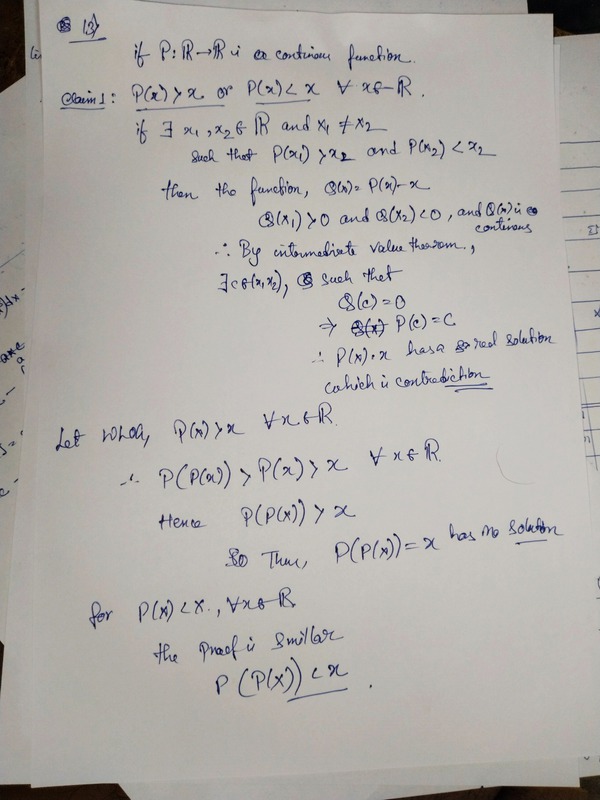 (3)
if P: ℝ→ℝ is continous function.
Claim 1: P(x) > x or P(x) < x ∀ x∈ℝ.
if ∃ x₁, x₂ ∈ ℝ and x₁ ≠ x₂
such that P(x₁) > x₂ and P(x₂) < x₂
then the function, Q(x) = P(x) - x
Q(x₁) > 0 and Q(x₂) < 0, and Q(x) is
continous
∴ By intermediate value theorem,
∃ c ∈ (x₁, x₂), such that
Q(c) = 0
⇒ P(c) = c
∴ P(x) = x has a real solution
which is contradiction
Let WLOG, P(x) > x ∀ x∈ℝ.
∴ P(P(x)) > P(x) > x ∀ x∈ℝ.
Hence P(P(x)) > x
So Thus, P(P(x)) = x has no solution
for P(x) < x, ∀x∈ℝ
the proof is smillar
P(P(x)) < x.